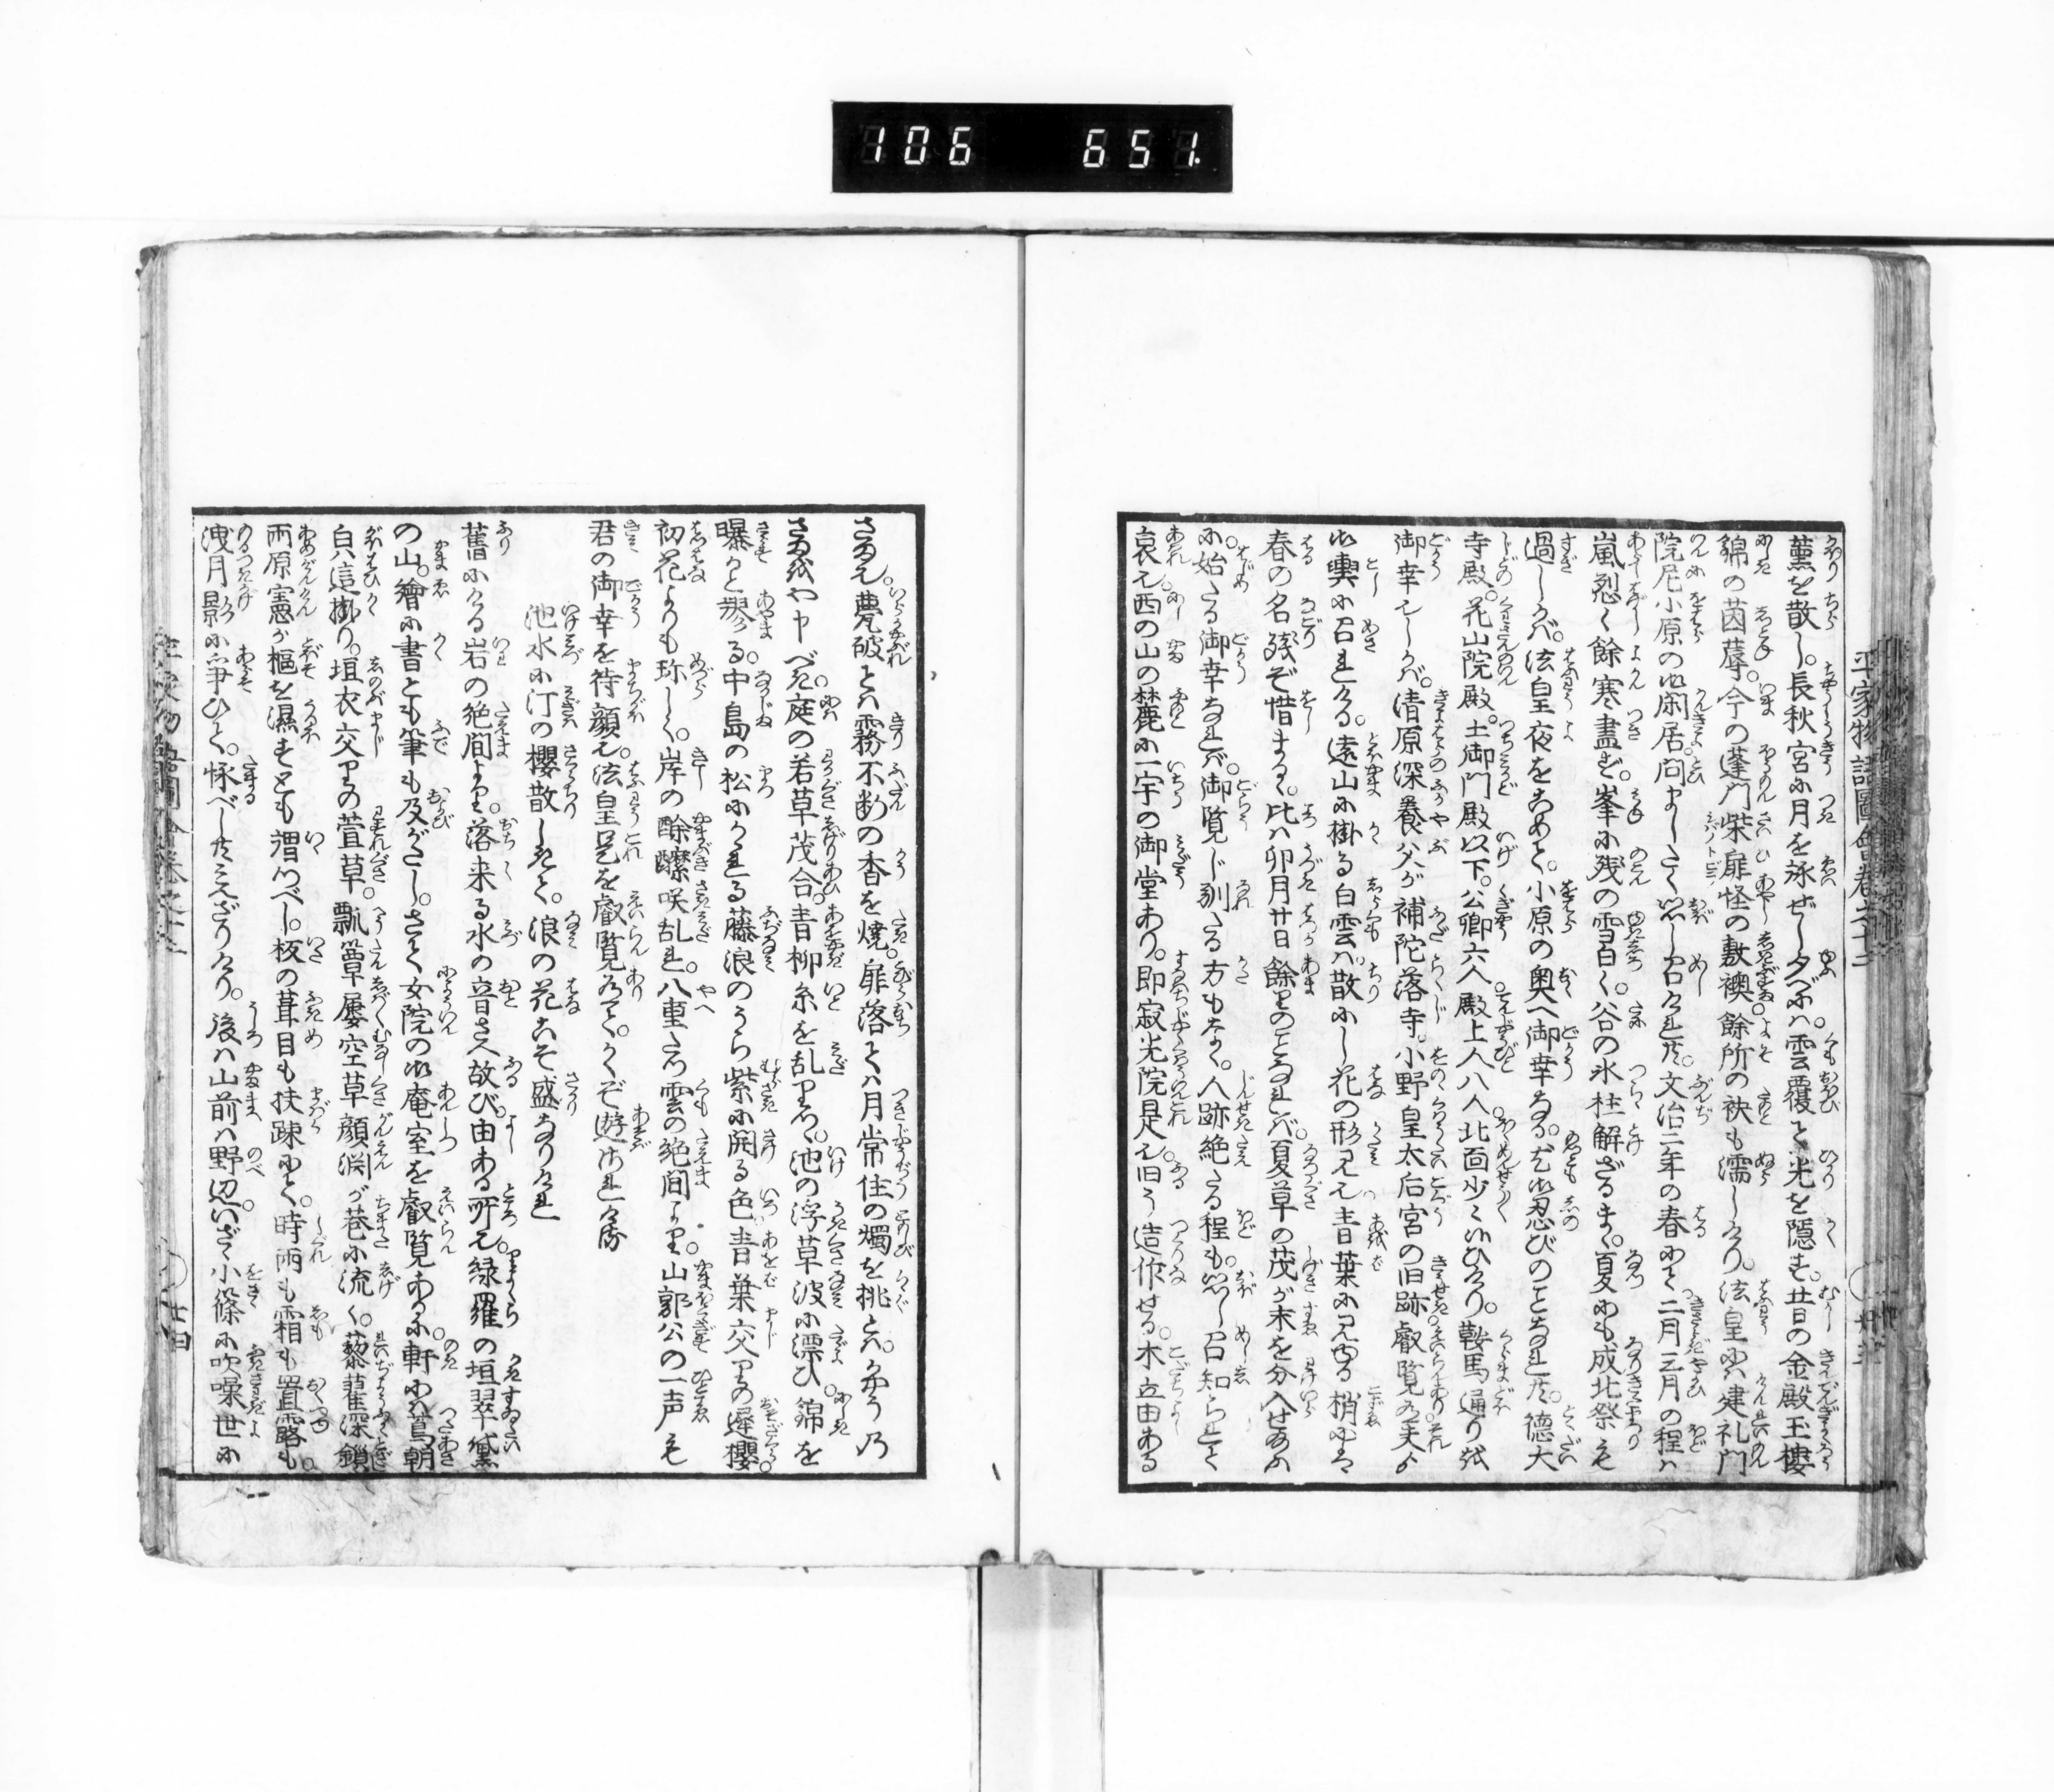 106 651
平家物語圖會巻之十二
薫を散し。長秋宮に月を泳ぜし夕べには。雲覆て光を隠す。昔の金殿玉樓
錦の茵蓐。今の蓬門柴扉怪の敷襖。餘所の袂も濡しけり。法皇は建礼門
院尼小原の御閑居。問まく思し召けれ共。文治二年の春にて二月三月の程は
嵐烈く餘寒盡ず。峯に残の雪白く。谷の氷柱解ざるまゝ。夏にも成北祭も
過しかば。法皇夜をこめて。小原の奥へ御幸なる。御忍びのことなれ共。徳大
寺殿。花山院殿。土御門殿以下。公卿六人殿上人八人北面少々候ひけり。鞍馬通り
御幸しかば。清原深養父が補陀落寺。小野皇太后宮の旧跡叡覧
御輿に召れける。遠山に掛る白雲は。散にし花の形見青葉に見ゆる梢には
春の名残ぞ惜まるゝ。比は卯月廿日餘のことなれば。夏草の茂が末を分入せ給ふ
に。始たる御幸なれば。御覧じ馴たる方もなく。人跡絶たる程も。思し召知られて
哀也。西の山の麓に一宇の御堂あり。即寂光院是也。旧う造作せる。木立由ある
さま也。甍破ては霧不断の香を焼。扉落ては月常住の燭を挑とは。かやうの
べき。庭の若草茂合。青柳糸を乱り。池の浮草波に漂ひ。錦を
曝かと。中島の松にかゝれる藤浪のうら紫に開る色青葉交りの遲櫻
初花よりも珍しく。岸の酴醾咲乱れ。八重たつ雲の絶間より。山郭公の一声も
君の御幸を待顔也。法皇是を叡覧有て。かくぞ遊されける
池水に汀の櫻散しきて。浪の花こそ盛なりけれ
舊にける岩の絶間より。落来る水の音さへ故び。由ある所也。緑羅の垣翠黛
の山。繪に書とも筆も及がたし。さて女院の御庵室を叡覧あるに。軒には蔦朝
㒵這掛り。垣衣交りの萱草。瓢簞屢空草顔渕が巷に流く。藜藋深鎖
雨原憲が樞を濕すとも謂つべし。板の葺目も扶踈にて。時雨も霜も置露も
洩月影に爭ひて。怺べし共みえざりけり。後は山前は野辺。いざゝ小篠に吹噪世に
廿四